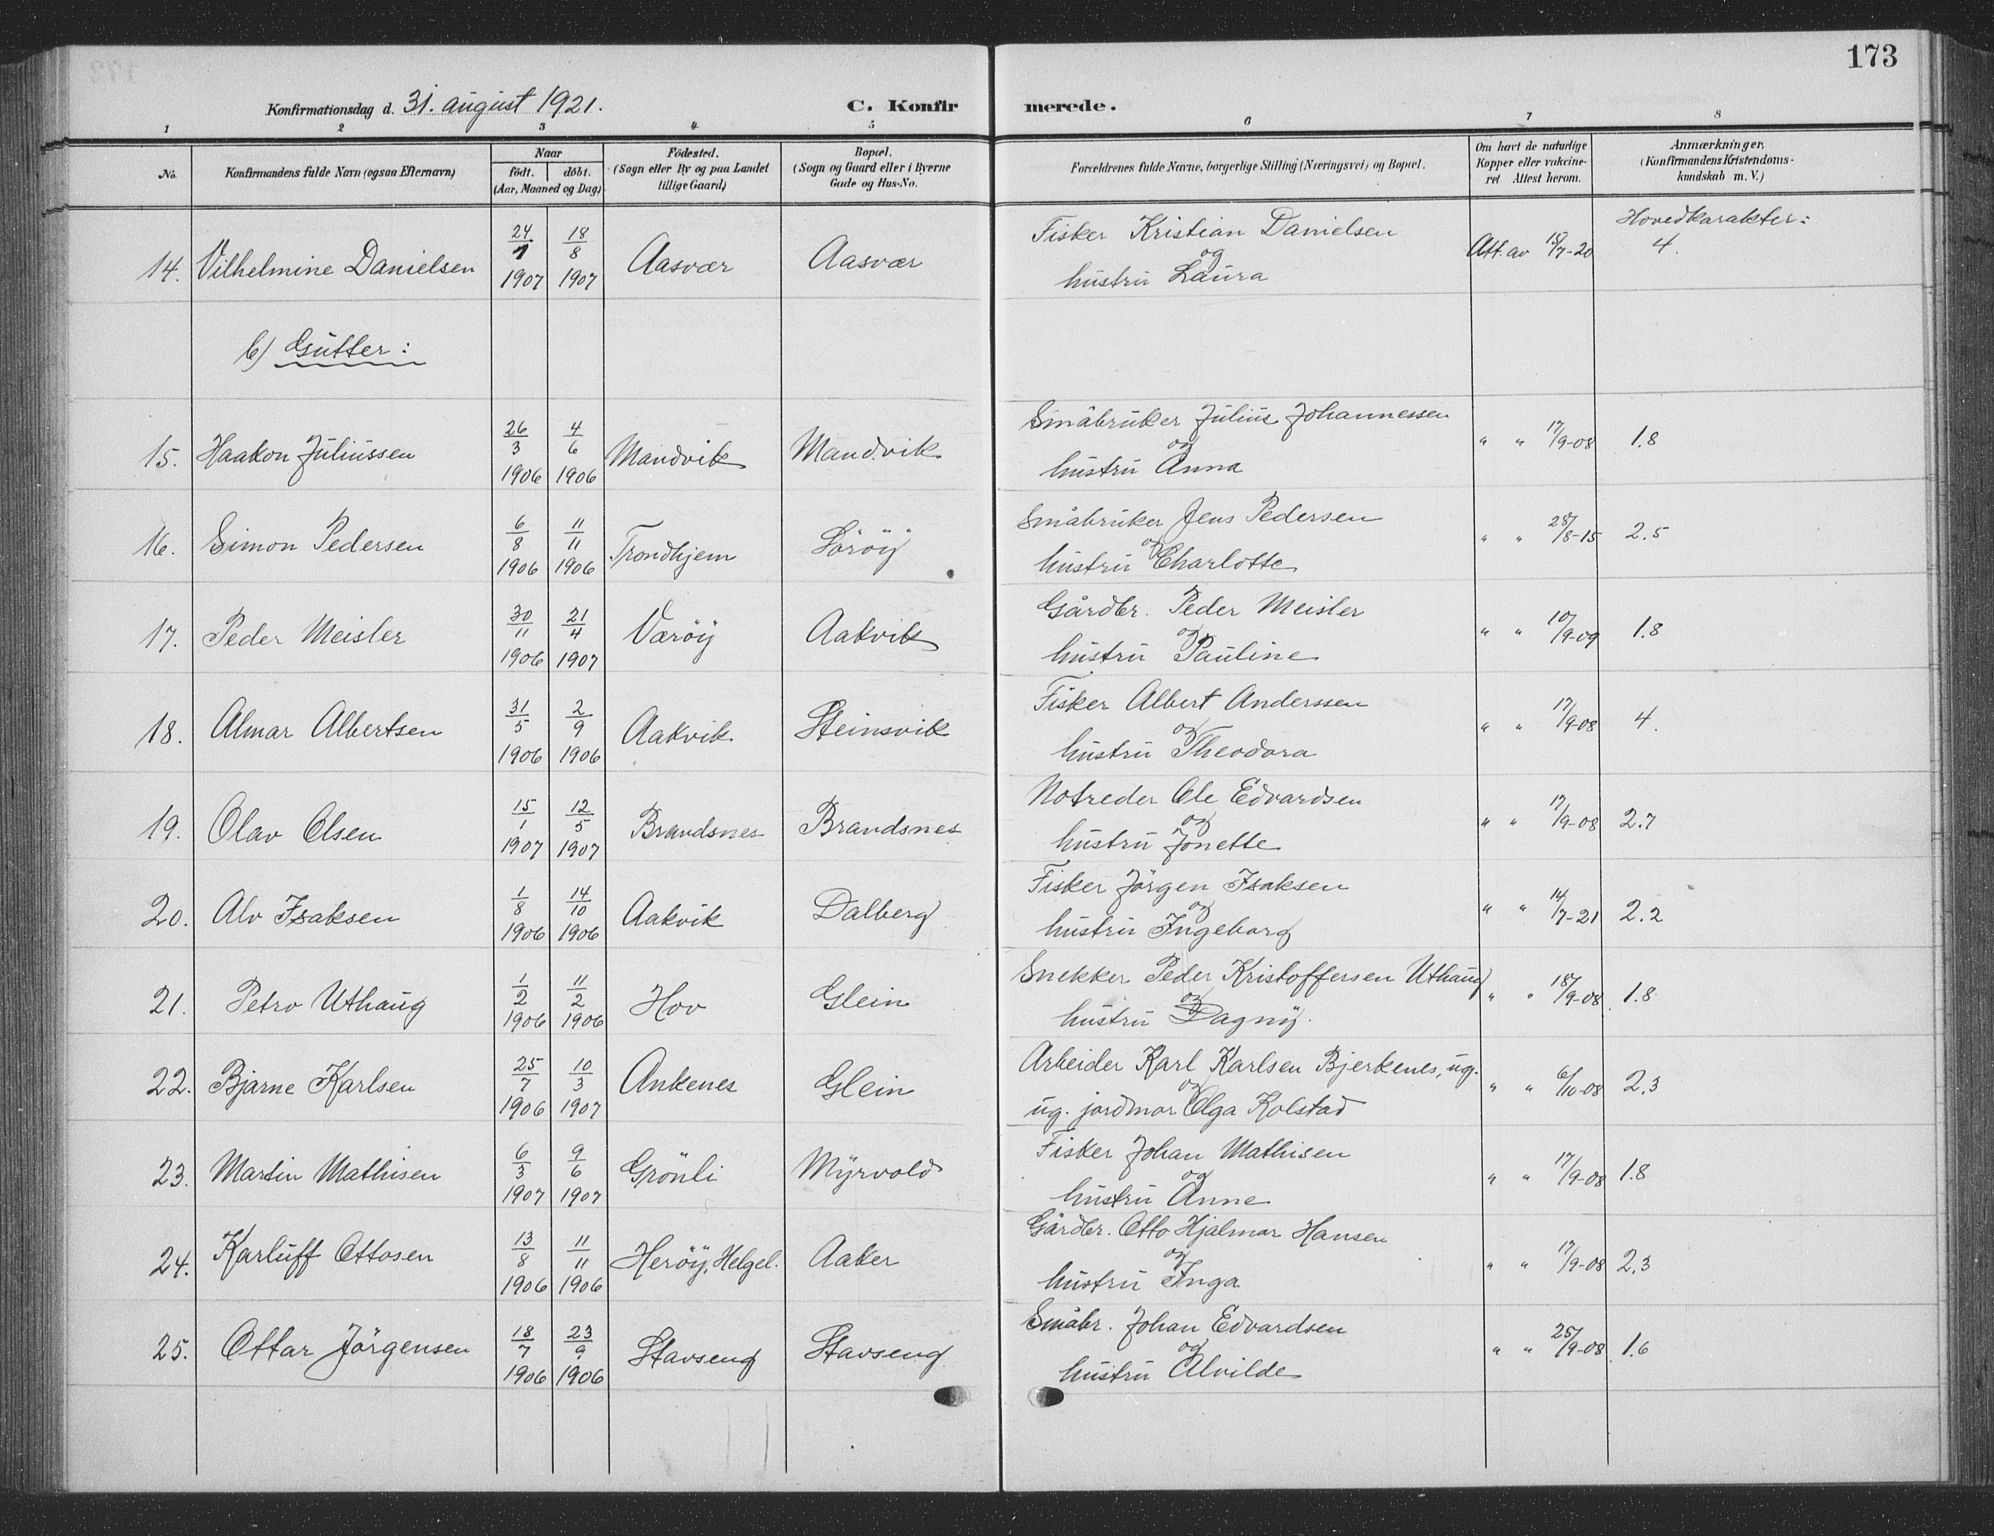 173
Konfirmationsdag d. 31. august 1921.
C. Konfirmerede.
1 2 3 4 5 6 7 8
No.
Konfirmandens fulde Navn (ogsaa Efternavn)
Naar
födt. döbt.
(Aar, Maaned og Dag)
Födested.
(Sogn eller By og paa Landet
tillige Gaard)
Bopæl.
(Sogn og Gaard eller i Byerne
Gade og Hus-No.
Forældrenes fulde Navne, borgerlige Stilling (Næringsvei) og Bopæl.
Om havt de naturlige
Kopper eller vakcine-
ret Attest herom.
Anmærkninger.
(Konfirmandens Kristendoms-
kundskab m. V.)
Hovedkarakter:
14. Vilhelmine Danielsen 24/7 1907 18/8 1907 Aasvær Aasvær Fisker Kristian Danielsen og hustru Laura Att. av 15/7-20 4.
b) Gutter:
15. Haakon Juliussen 26/3 1906 4/6 1906 Mandvik Mandvik Småbruker Julius Johannessen og hustru Anna " " 17/9-08 1.8
16. Simon Pedersen 6/8 1906 11/11 1906 Trondhjem Söröy Småbruker Jens Pedersen og hustru Charlotte " " 28/8-15 2.5
17. Peder Meisler 30/11 1906 21/4 1907 Væröy Aakvik Gårdbr. Peder Meisler og hustru Pauline " " 10/9-09 1.8
18. Almar Albertsen 31/5 1906 2/9 1906 Aakvik Steinsvik Fisker Albert Anderssen og hustru Theodora " " 17/9-08 4.
19. Olav Olsen 15/1 1907 12/5 1907 Brandsnes Brandsnes Notreder Ole Edvardsen og hustru Jonette " " 17/9-08 2.7
20. Alv Isaksen 1/8 1906 14/10 1906 Aakvik Dalberg Fisker Jörgen Isaksen og hustru Ingeborg " " 14/7-21 2.2
21. Petro Uthaug 1/2 1906 11/2 1906 Hov Glein Snekker Peder Kristoffersen Uthaug og hustru Dagny. " " 18/9-08 1.8
22. Bjarne Karlsen 25/7 1906 10/3 1907 Ankenes Glein Arbeider Karl Karlsen Bjerkenes, ug. og ug. jordmor Olga Kolstad " " 6/10-08 2.3
23. Martin Mathisen 6/3 1907 9/6 1907 Grönli Myrvold Fisker Johan Mathisen og hustru Anne " " 17/9-08 1.8
24. Karluff Ottosen 13/8 1906 11/11 1906 Heröy, Helgel. Aaker Gårdbr. Otto Hjalmar Hansen og hustru Inga " " 17/9-08 2.3
25. Ottar Jörgensen 18/7 1906 23/9 1906 Stavseng Stavseng Småbr. Johan Edvardsen og hustru Alvilde " " 25/9-08 1.6